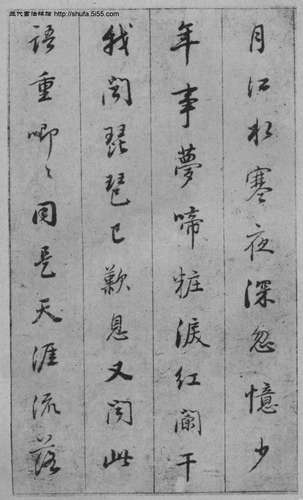 历代书法碑帖 http://shufa.5i55.com
月江水寒夜深忽憶少
年事夢啼粧淚紅闌干
我聞琵琶已歎息又聞此
語重唧〻同是天涯流落